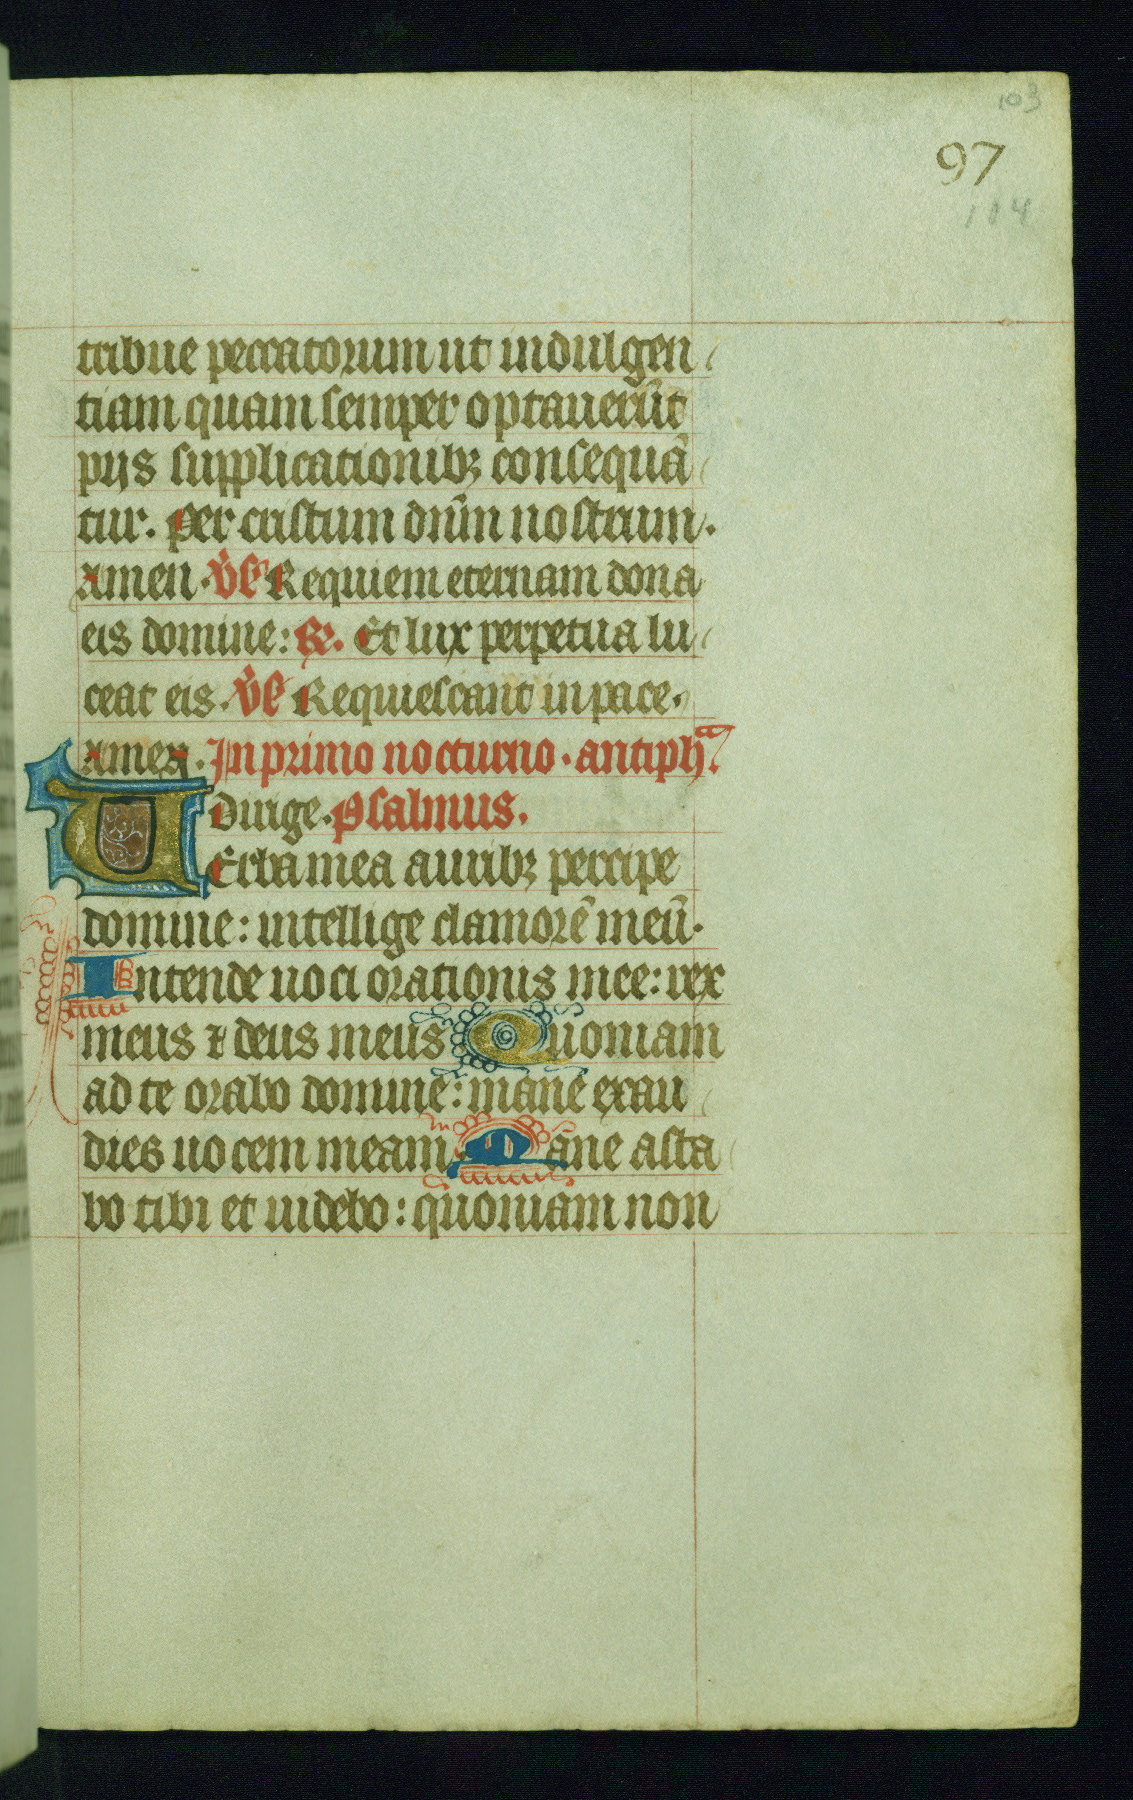 103
97
114
tribue peccatorum ut indulgen
tiam quam semper optauerūt
pijs supplicationibꝫ consequā
tur. Per cristum dn̄m nostrum.
Amen. v̄s Requiem eternam dona
eis domine: ℟. Et lux perpetua lu
ceat eis. v̄s Requiescant in pace.
Amen. In primo nocturno. antiphᵃ.
Dirige. Psalmus.
VErba mea auribꝫ percipe
domine: intellige clamorē meū.
Intende uoci orationis mee: rex
meus ⁊ deus meus Quoniam
ad te orabo domine: mane exau
dies uocem meam. Mane asta
bo tibi et uidebo: quoniam non